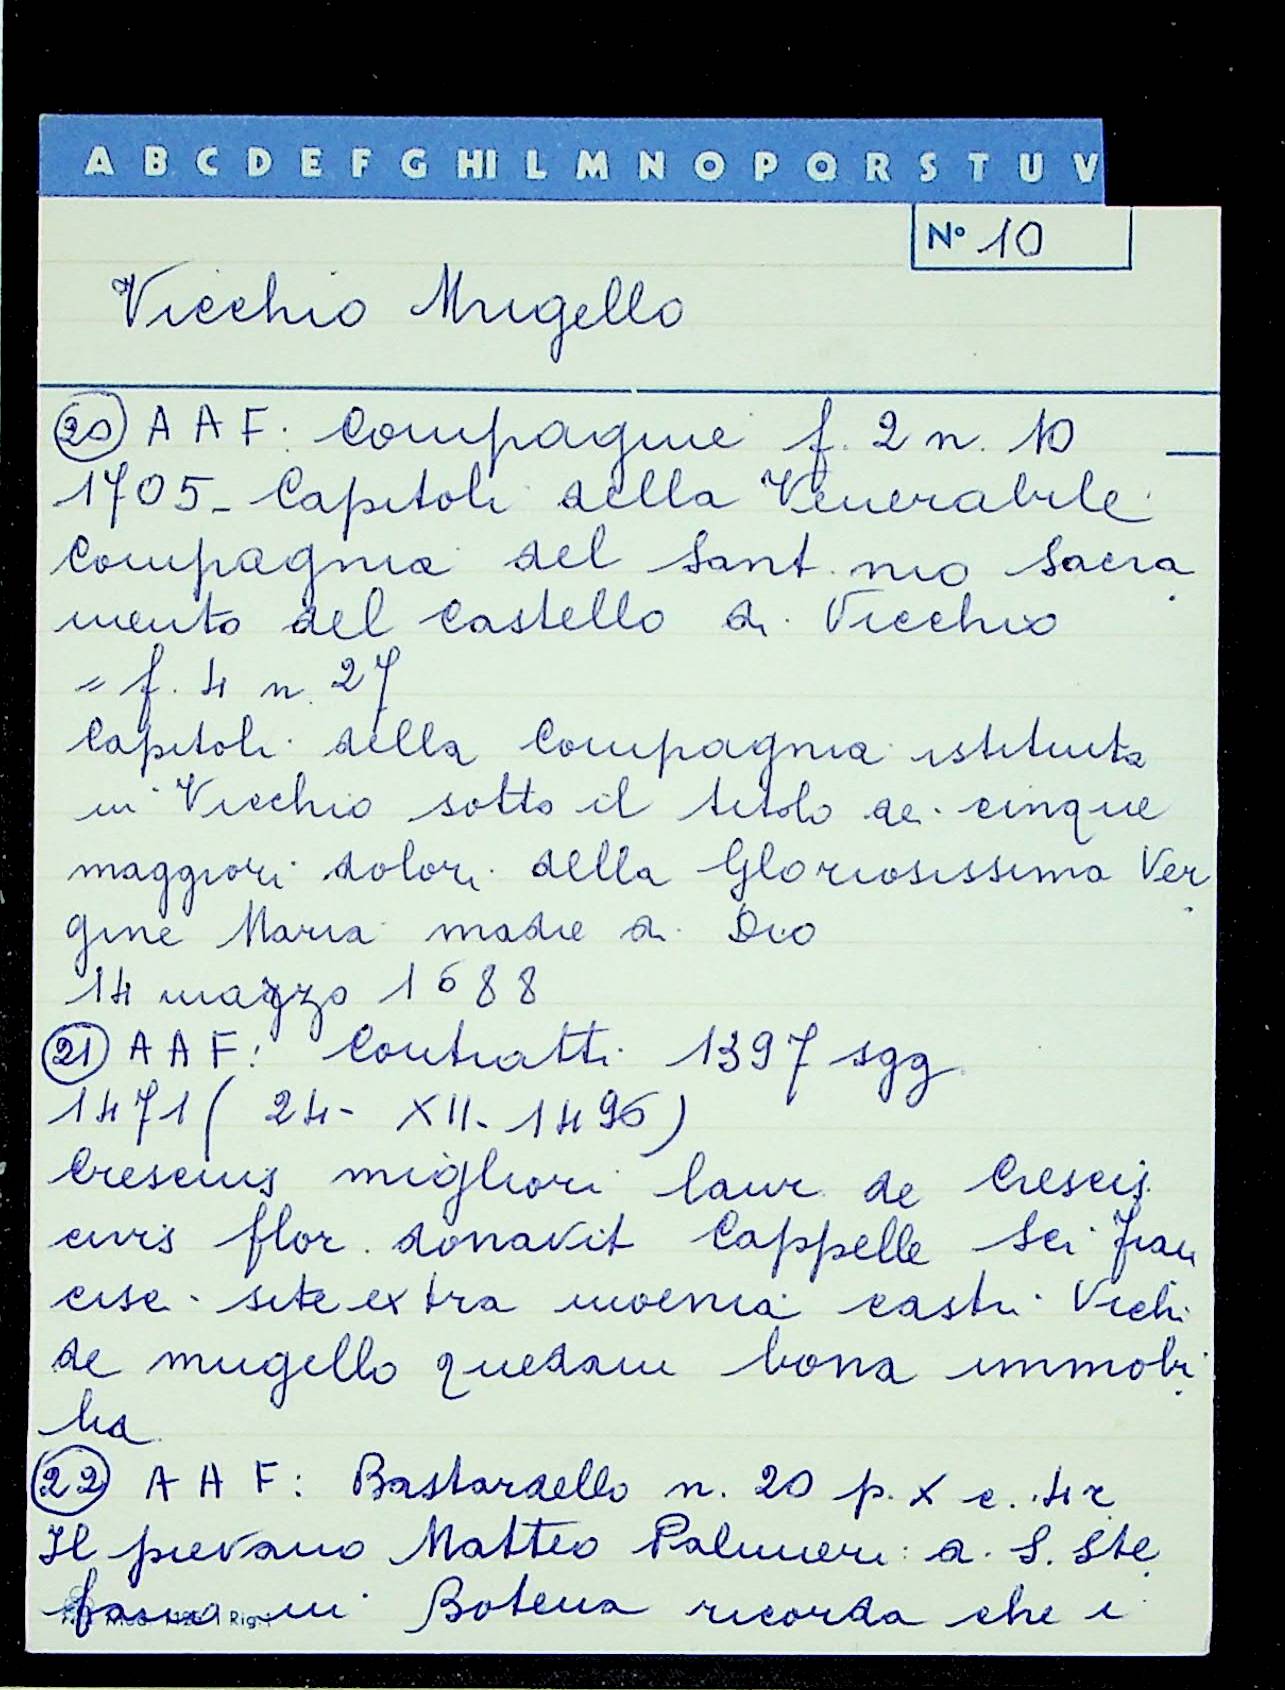 A B C D E F G HI L M N O P Q R S T U V
N° 10
Vicchio Mugello
20 A A F. Compagnie f. 2 n. 10
1705 - Capitoli della Venerabile
Compagnia del Sant.mo Sacra
mento del Castello di Vicchio
= f. 4 n. 27
Capitoli della Compagnia istituita
in Vicchio sotto il titolo dei cinque
maggiori dolori della Gloriosissima Ver
gine Maria madre di Dio
14 marzo 1688
21 A A F: Contratti 1397 sgg.
1471 ( 24 - XII - 1496)
migliori laur. de
civis flor. donavit Cappelle Sci Fran
cisci site extra moenia castri Vichi
de mugello quedam bona immobi
lia
22 A A F: Bastardello n. 20 p. x c. 42
Il pievano Matteo Palmieri a S. Ste
fano in Botena ricorda che i